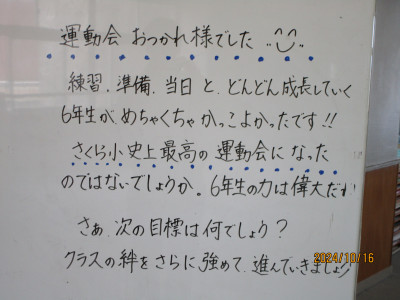 運動会 おつかれ様でした
練習、準備、当日と、どんどん成長していく
6年生が、めちゃくちゃかっこよかったです!!
さくら小史上最高の運動会になった
のではないでしょうか。6年生の力は偉大だ
さぁ、次の目標は何でしょう?
クラスの絆をさらに強めて、進んでいきましょ
2024/10/16